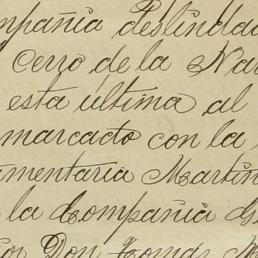 mpañia deslindad
Cerro de la Nar
esta última al
marcado con la
mentaria Martin
la Compañia
Don Tomas M